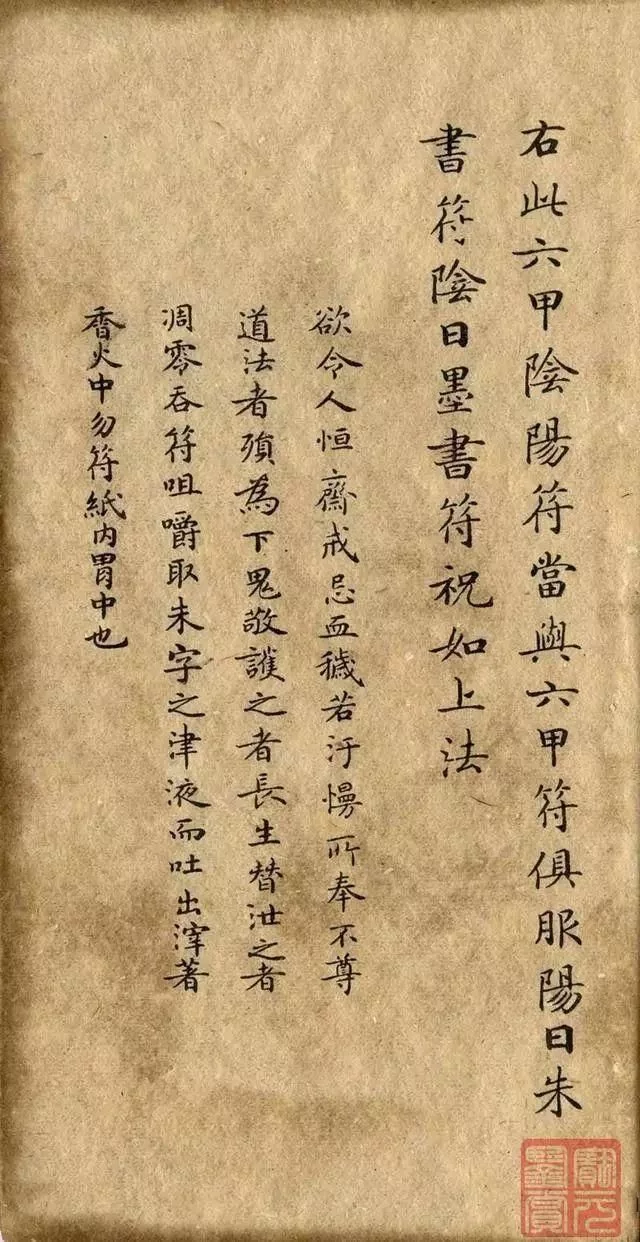 右此六甲陰陽符當與六甲符俱服陽日朱
書符陰日墨書符祝如上法
欲令人恒齋戒忌血穢若汙慢所奉不尊
道法者殞為下鬼敬護之者長生替泄之者
凋零吞符咀嚼取朱字之津液而吐出滓著
香火中勿符紙內胃中也
鑒賞